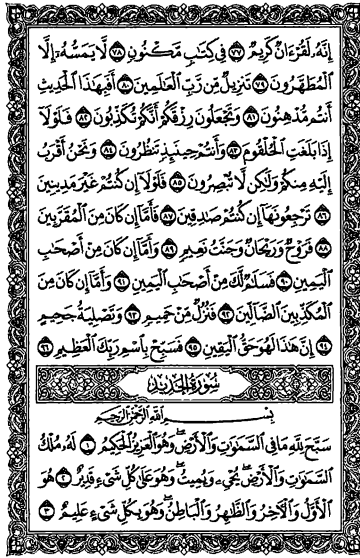 إِنَّهُۥ لَقُرْءَانٌ كَرِيمٌ ٧٧ فِى كِتَٰبٍ مَّكْنُونٍ ٧٨ لَّا يَمَسُّهُۥٓ إِلَّا
ٱلْمُطَهَّرُونَ ٧٩ تَنزِيلٌ مِّن رَّبِّ ٱلْعَٰلَمِينَ ٨٠ أَفَبِهَٰذَا ٱلْحَدِيثِ
أَنتُم مُّدْهِنُونَ ٨١ وَتَجْعَلُونَ رِزْقَكُمْ أَنَّكُمْ تُكَذِّبُونَ ٨٢ فَلَوْلَآ
إِذَا بَلَغَتِ ٱلْحُلْقُومَ ٨٣ وَأَنتُمْ حِينَئِذٍ تَنظُرُونَ ٨٤ وَنَحْنُ أَقْرَبُ
إِلَيْهِ مِنكُمْ وَلَٰكِن لَّا تُبْصِرُونَ ٨٥ فَلَوْلَآ إِن كُنتُمْ غَيْرَ مَدِينِينَ
٨٦ تَرْجِعُونَهَآ إِن كُنتُمْ صَٰدِقِينَ ٨٧ فَأَمَّآ إِن كَانَ مِنَ ٱلْمُقَرَّبِينَ
٨٨ فَرَوْحٌ وَرَيْحَانٌ وَجَنَّتُ نَعِيمٍ ٨٩ وَأَمَّآ إِن كَانَ مِنْ أَصْحَٰبِ
ٱلْيَمِينِ ٩٠ فَسَلَٰمٌ لَّكَ مِنْ أَصْحَٰبِ ٱلْيَمِينِ ٩١ وَأَمَّآ إِن كَانَ مِنَ
ٱلْمُكَذِّبِينَ ٱلضَّآلِّينَ ٩٢ فَنُزُلٌ مِّنْ حَمِيمٍ ٩٣ وَتَصْلِيَةُ جَحِيمٍ
٩٤ إِنَّ هَٰذَا لَهُوَ حَقُّ ٱلْيَقِينِ ٩٥ فَسَبِّحْ بِٱسْمِ رَبِّكَ ٱلْعَظِيمِ ٩٦
سُورَةُ الحَدِيد
بِسْمِ ٱللَّهِ ٱلرَّحْمَٰنِ ٱلرَّحِيمِ
سَبَّحَ لِلَّهِ مَا فِى ٱلسَّمَٰوَٰتِ وَٱلْأَرْضِ وَهُوَ ٱلْعَزِيزُ ٱلْحَكِيمُ ١ لَهُۥ مُلْكُ
ٱلسَّمَٰوَٰتِ وَٱلْأَرْضِ يُحْىِۦ وَيُمِيتُ وَهُوَ عَلَىٰ كُلِّ شَىْءٍ قَدِيرٌ ٢ هُوَ
ٱلْأَوَّلُ وَٱلْءَاخِرُ وَٱلظَّٰهِرُ وَٱلْبَاطِنُ وَهُوَ بِكُلِّ شَىْءٍ عَلِيمٌ ٣